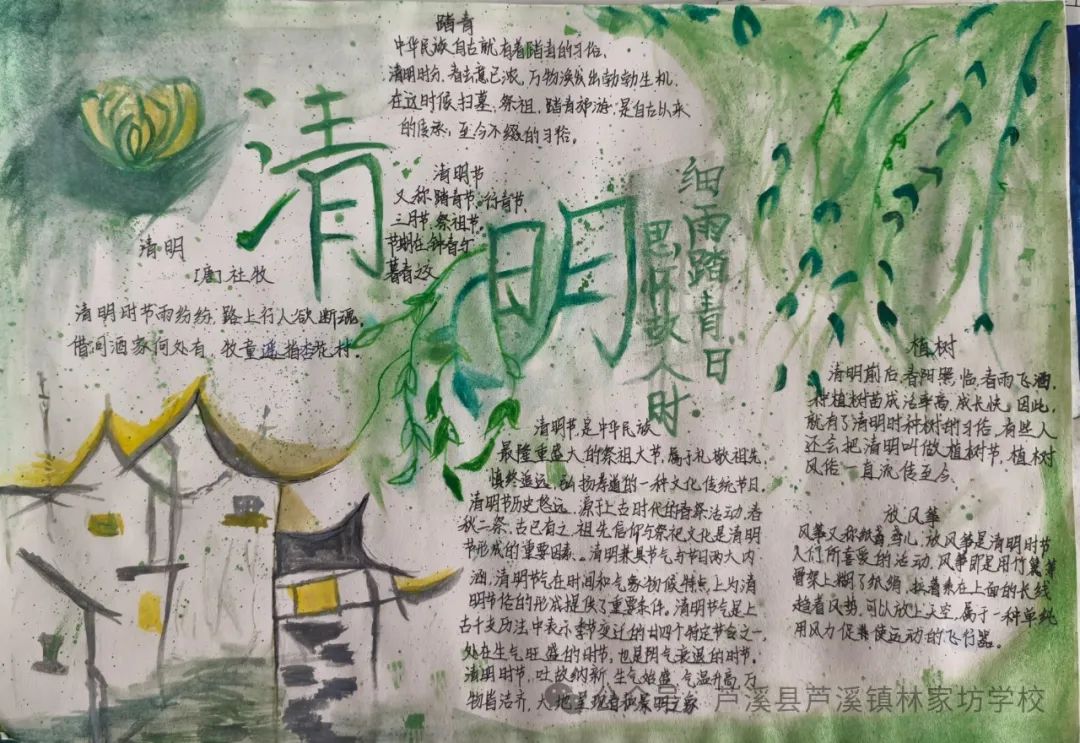 踏青
中华民族自古就有着踏青的习俗,
清明时分,春去意已浓,万物焕发出勃勃生机,
在这时候扫墓,祭祖,踏青郊游,是自古以来
的传承,至今不缀的习俗。
清明节
又称踏青节、行青节
三月节、祭祖节。
节期在仲春与
暮春之交
清明
细雨踏青日
思怀故人时
清明
[唐]杜牧
清明时节雨纷纷,路上行人欲断魂,
借问酒家何处有,牧童遥指杏花村。
清明节,是中华民族
最隆重盛大的祭祖大节,属于礼敬祖先
慎终追远、弘扬孝道的一种文化传统节日。
清明节历史悠远,源于上古时代的春祭活动,春
秋二祭,古已有之,祖先信仰与祭祀文化是清明
节形成的重要因素。清明兼具节气与节日两大内
涵,清明节气在时间和气象物候特点上为清
明节俗的形成提供了重要条件。清明节气是上
古干支历法中表示季节变迁的廿四个特定节令之一,
处在生气旺盛的时节,也是阴气衰退的时节。
清明时节,吐故纳新、生气始盛、气温升高,万
物皆洁齐,大地呈现春和景明之象
植树
清明前后,春阳照临,春雨飞洒,
种植树苗成活率高,成长快。因此,
就有了清明时种树的习俗,有些人
还会把清明叫做植树节,植树
风俗一直流传至今。
放风筝
风筝又称纸鸢、鸢儿,放风筝是清明时节
人们所喜爱的活动,风筝即是用竹篾等
骨架上糊了纸绢,拉着系在上面的长线
趁着风势,可以放上天空,属于一种单纯
用风力促使运动的飞行器。
芦溪县芦溪镇林家坊学校